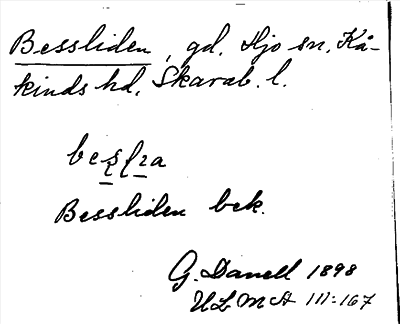 Bessliden, gd, Hjo sn, Kå-
kinds hd, Skarab. l.
Bessliden bek.
G. Danell 1898
ULMA 111:167